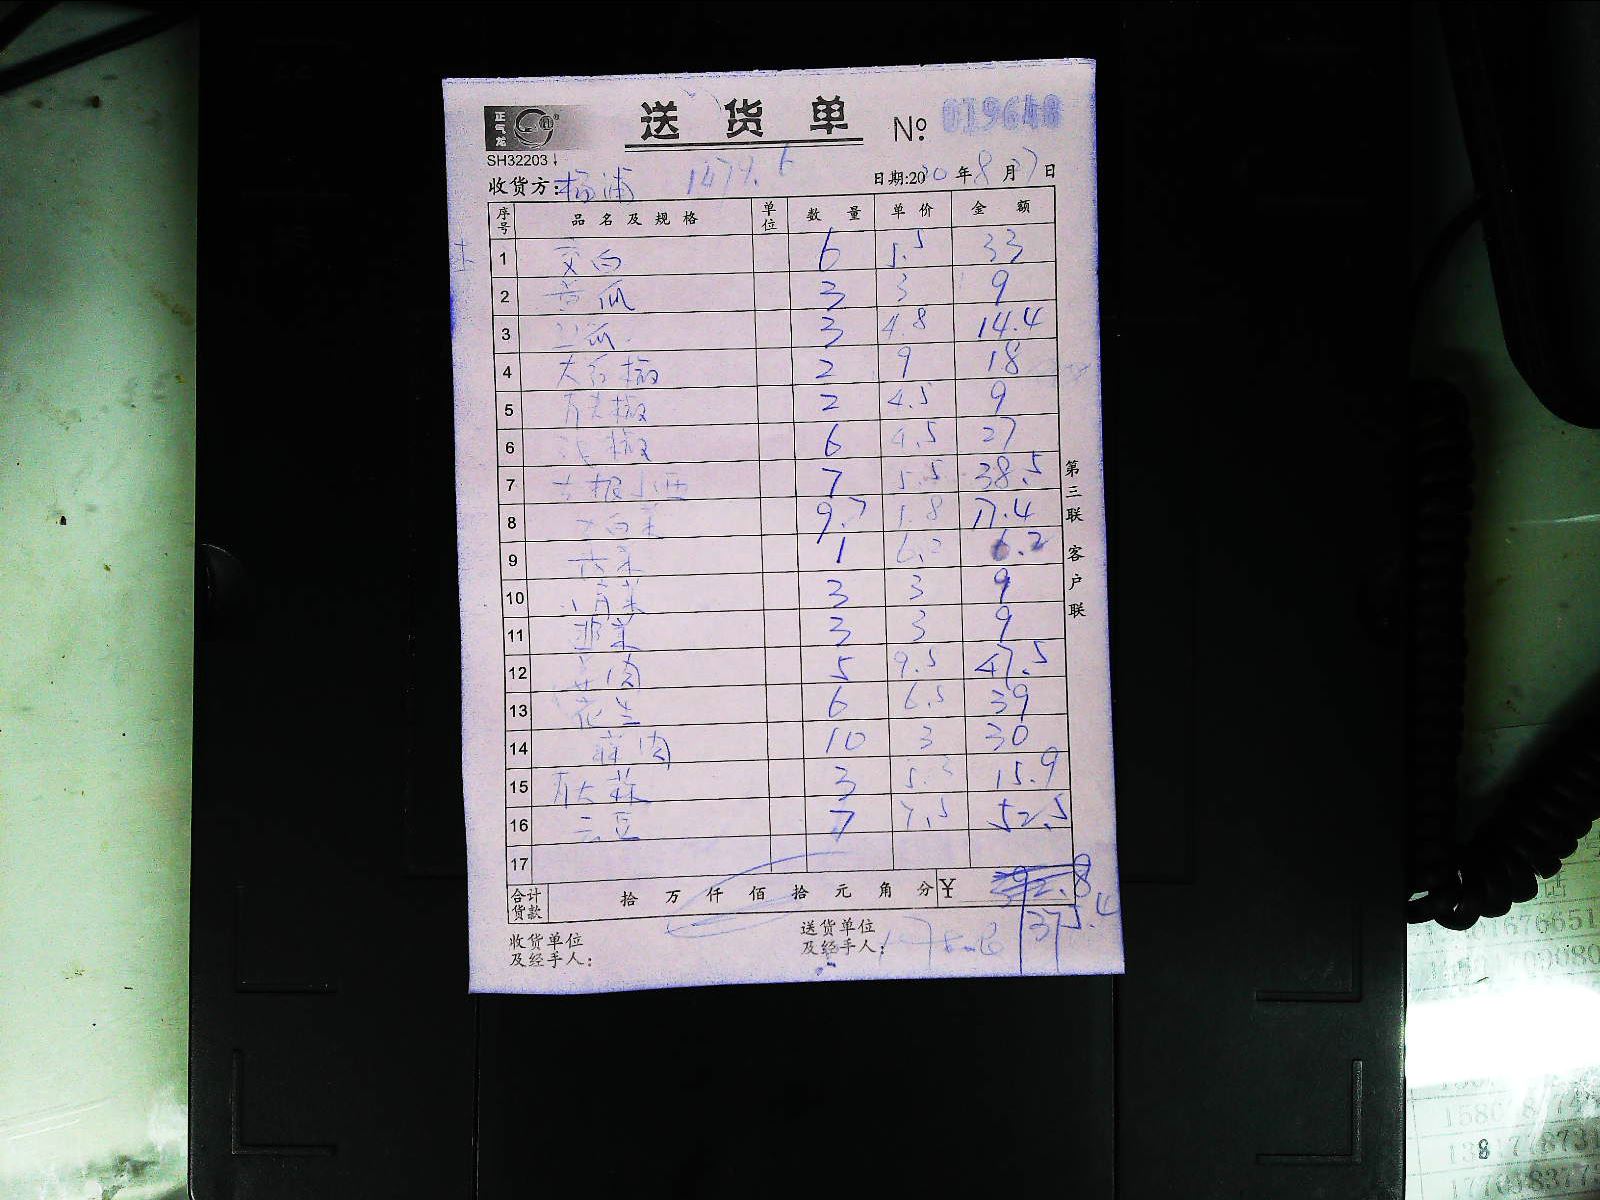 正气龙
送货单 № 019648
SH32203
收货方: 杨浦 1479.6 日期:2020年8月27日
序号 品名及规格 单位 数量 单价 金额
1 茭白 6 5.5 33
2 黄瓜 3 3 9
3 3 4.8 14.4
4 大红椒 2 9 18
5 青尖椒 2 4.5 9
6 椒 6 4.5 27
7 7 5.5 38.5
8 大白菜 9.7 1.8 17.4
9 1 6.2 6.2
10 3 3 9
11 韭菜 3 3 9
12 肉 5 9.5 47.5
13 花生 6 6.5 39
14 蒜肉 10 3 30
15 青大蒜 3 5.3 15.9
16 云豆 7 7.5 52.5
17
合计货款 拾万仟佰拾元角分 ¥
375.4
收货单位及经手人:
送货单位及经手人:
第三联 客户联